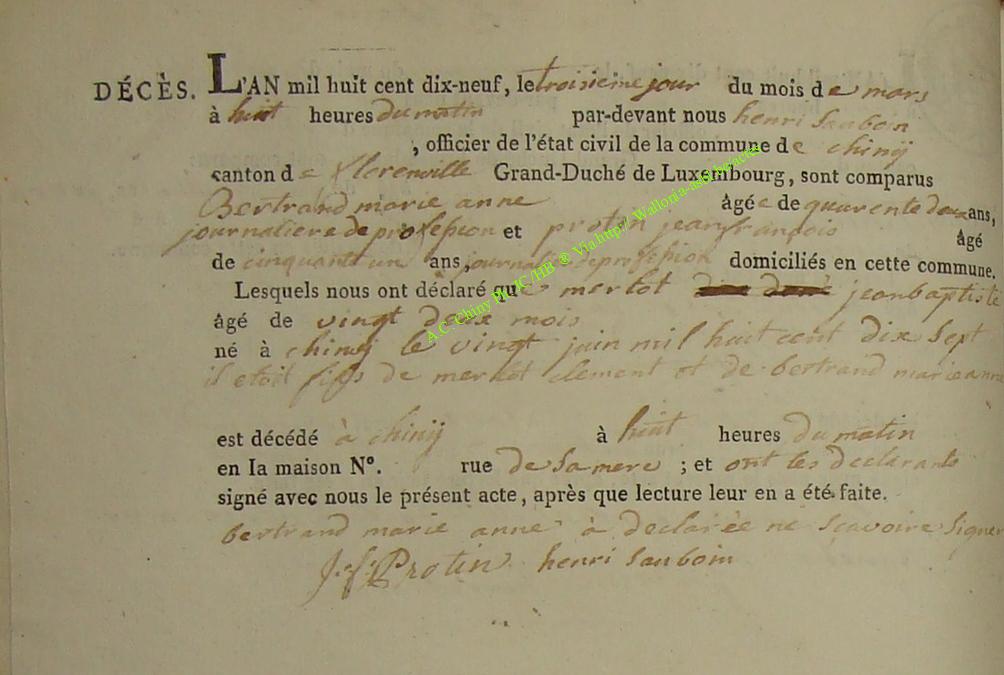 DÉCÈS. L'AN mil huit cent dix-neuf, le troisieme jour du mois de mars
à huit heures du matin par-devant nous henri Sauboin
, officier de l'état civil de la commune de chinÿ
canton de florenville Grand-Duché de Luxembourg, sont comparus
Bertrand marie anne âgée de quarente deux ans,
journaliere de profession et protin jean françois âgé
de cinquante un ans, journalier de profession domiciliés en cette commune.
Lesquels nous ont déclaré que merlot jeanbaptiste
âgé de vingt deux mois
né à chinÿ le vingt juin mil huit cent dix sept
il etoit fils de merlot clement et de bertrand marie anne
est décédé à chinÿ à huit heures du matin
en la maison N°. rue de Sa mere ; et ont les declarants
signé avec nous le présent acte, après que lecture leur en a été faite.
bertrand marie anne à declarée ne sçavoire signer
J: f: Protin henri Sauboin
A.C. Chiny Ph. JC/HB ® Via http// Wallonia-asbl.be/actes